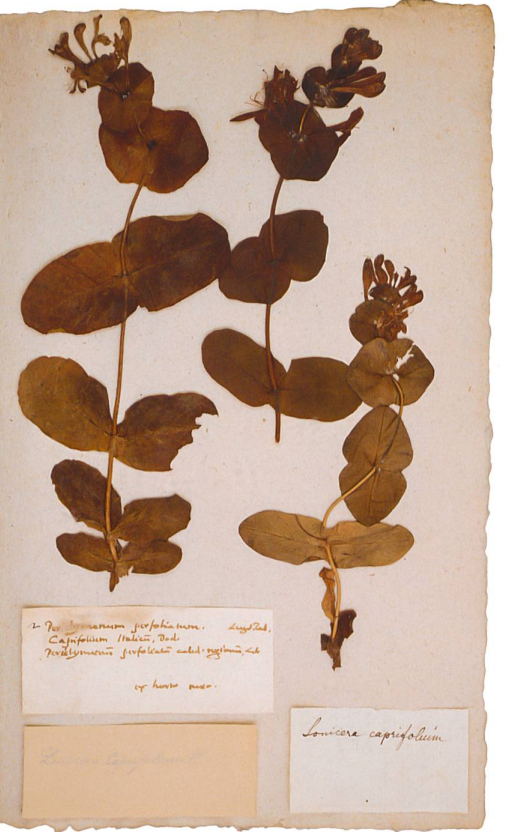 2 Periclymenum perfoliatum. Lugd Bat.
Caprifolium Italicū, Dod.
Periclymenū perfoliatū calid. regionū, Lob
ex horto meo.
Lonicera caprifolium